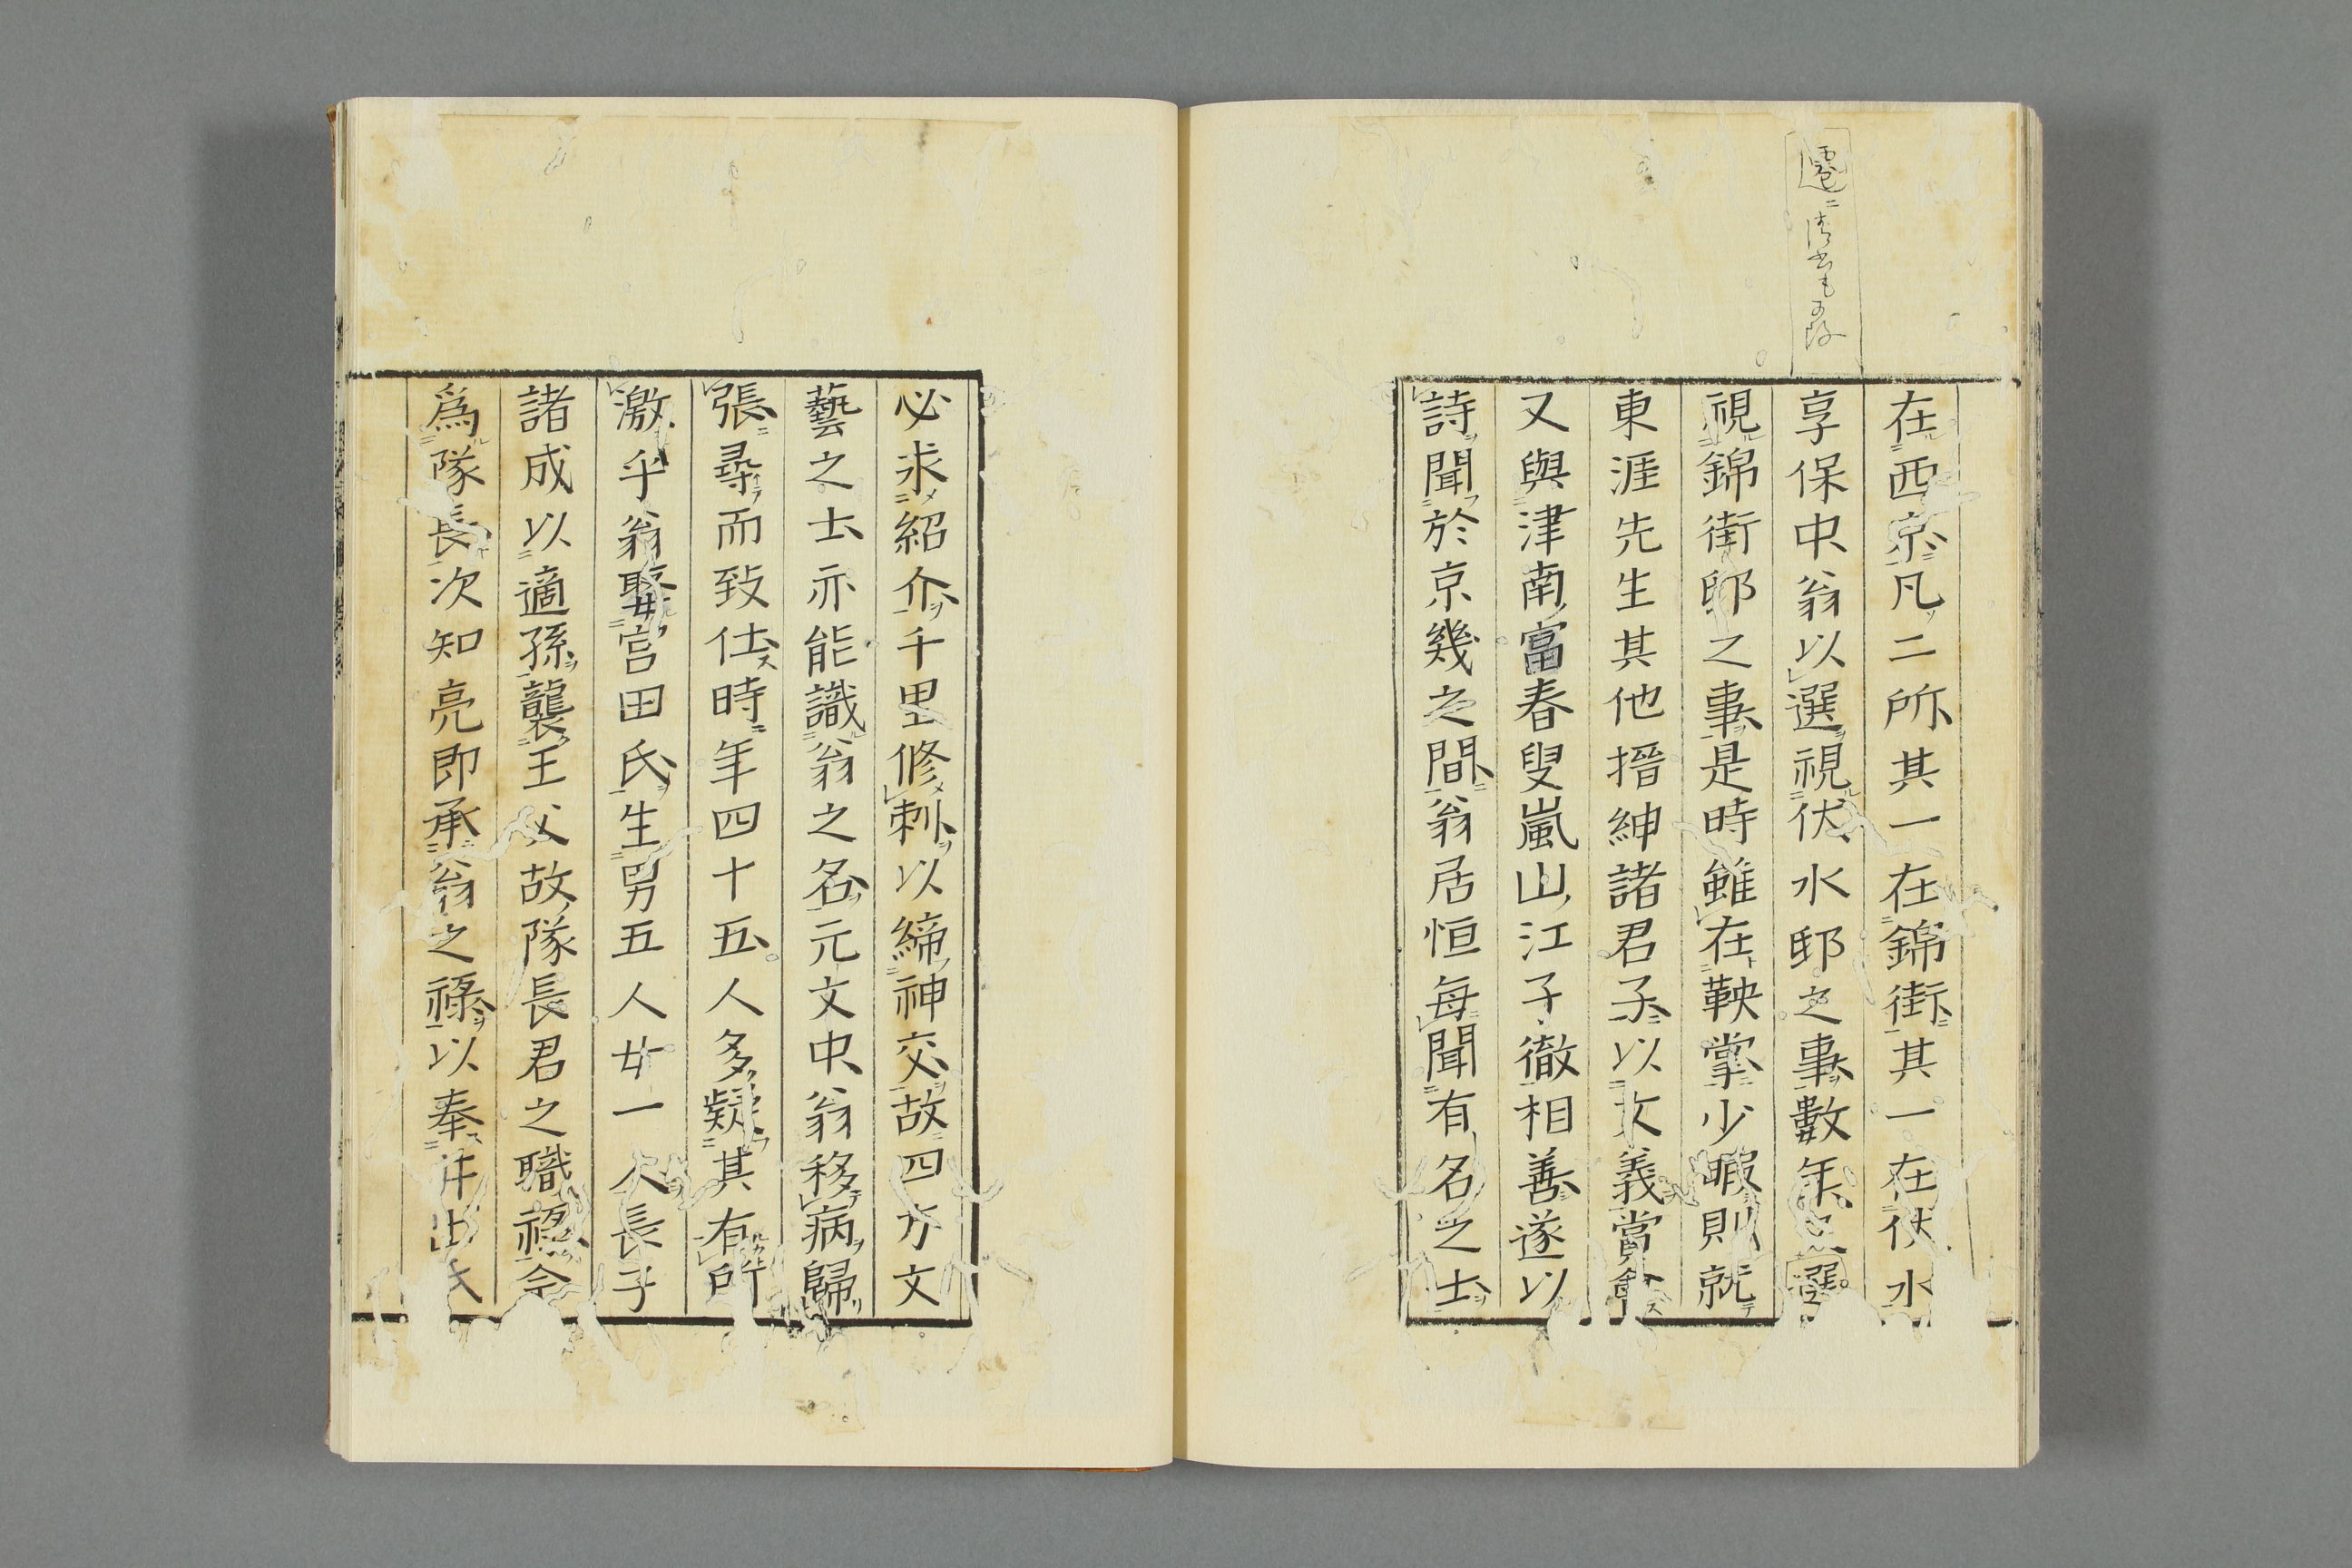 在西京凡二所其一在錦街其一在伏水
享保中翁以選視伏水邸之事數年
選
視錦街邸之事是時雖在鞅掌少暇則就
東涯先生其他搢紳諸君子以文義賞
又與津南富春叟嵐山江子徹相善遂以
詩聞於京幾之間翁居恒每聞有名之士
必求紹介千里修刺以締神交故四方文
藝之士亦能識翁之名元文中翁移病歸
張尋而致仕時年四十五人多疑其有所
激乎翁娶宮田氏生男五人女一人長子
諸成以適孫襲王父故隊長君之職祿令
爲隊長次知亮即承翁之祿以奉